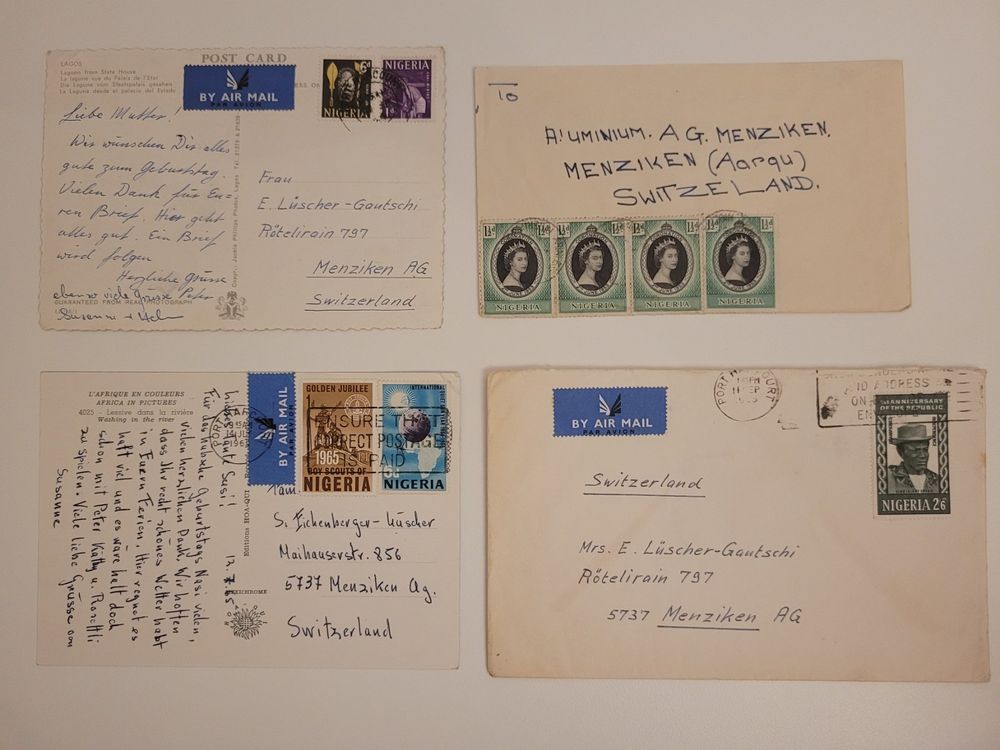 LAGOS
Lagoon from State House
La lagune vue du Palais de l'Etat
Die Lagune vom Staatspalais gesehen
La Laguna desde el palacio del Estado
POST CARD
BY AIR MAIL
PAR AVION
NIGERIA
NIGERIA
Liebe Mutter!
Wir wünschen Dir alles
gute zum Geburtstag.
Vielen Dank für Eu-
ren Brief. Hier geht
alles gut. Ein Brief
wird folgen
Herzliche Grüsse
ebenso viele Grüsse Peter
Susanne +
GUARANTEED FROM REAL PHOTOGRAPH
Frau
E. Lüscher-Gautschi
Rötelirain 797
Menziken AG
Switzerland
To
ALUMINIUM. A G. MENZIKEN,
MENZIKEN (Aargu)
SWITZELAND.
1½d 1½d 1½d 1½d
NIGERIA NIGERIA NIGERIA NIGERIA
L'AFRIQUE EN COULEURS
AFRICA IN PICTURES
4025 - Lessive dans la rivière
Washing in the river
13.7.65
liebe Tante Susi!
Für das hübsche Geburtstags Nasi vielen,
vielen herzlichen Dank. Wir hoffen
dass Ihr recht schönes Wetter habt
in Euern Ferien. Hier regnet es
halt viel und es wäre halt doch
schön mit Peter Käthy u. Rosettli
zu spielen. Viele liebe Grüsse von
Susanne
BY AIR MAIL
PAR AVION
GOLDEN JUBILEE
1965
BOY SCOUTS OF
NIGERIA
INTERNATIONAL
NIGERIA
ENSURE THAT
CORRECT POSTAGE
IS PAID
Fam.
S. Eichenberger-Lüscher
Maihauserstr. 856
5737 Menziken Ag.
Switzerland
BY AIR MAIL
PAR AVION
PORT HARCOURT
SEP
ADDRESS
1st ANNIVERSARY
OF THE REPUBLIC
NIGERIA 2/6
Switzerland
Mrs. E. Lüscher-Gautschi
Rötelirain 797
5737 Menziken AG